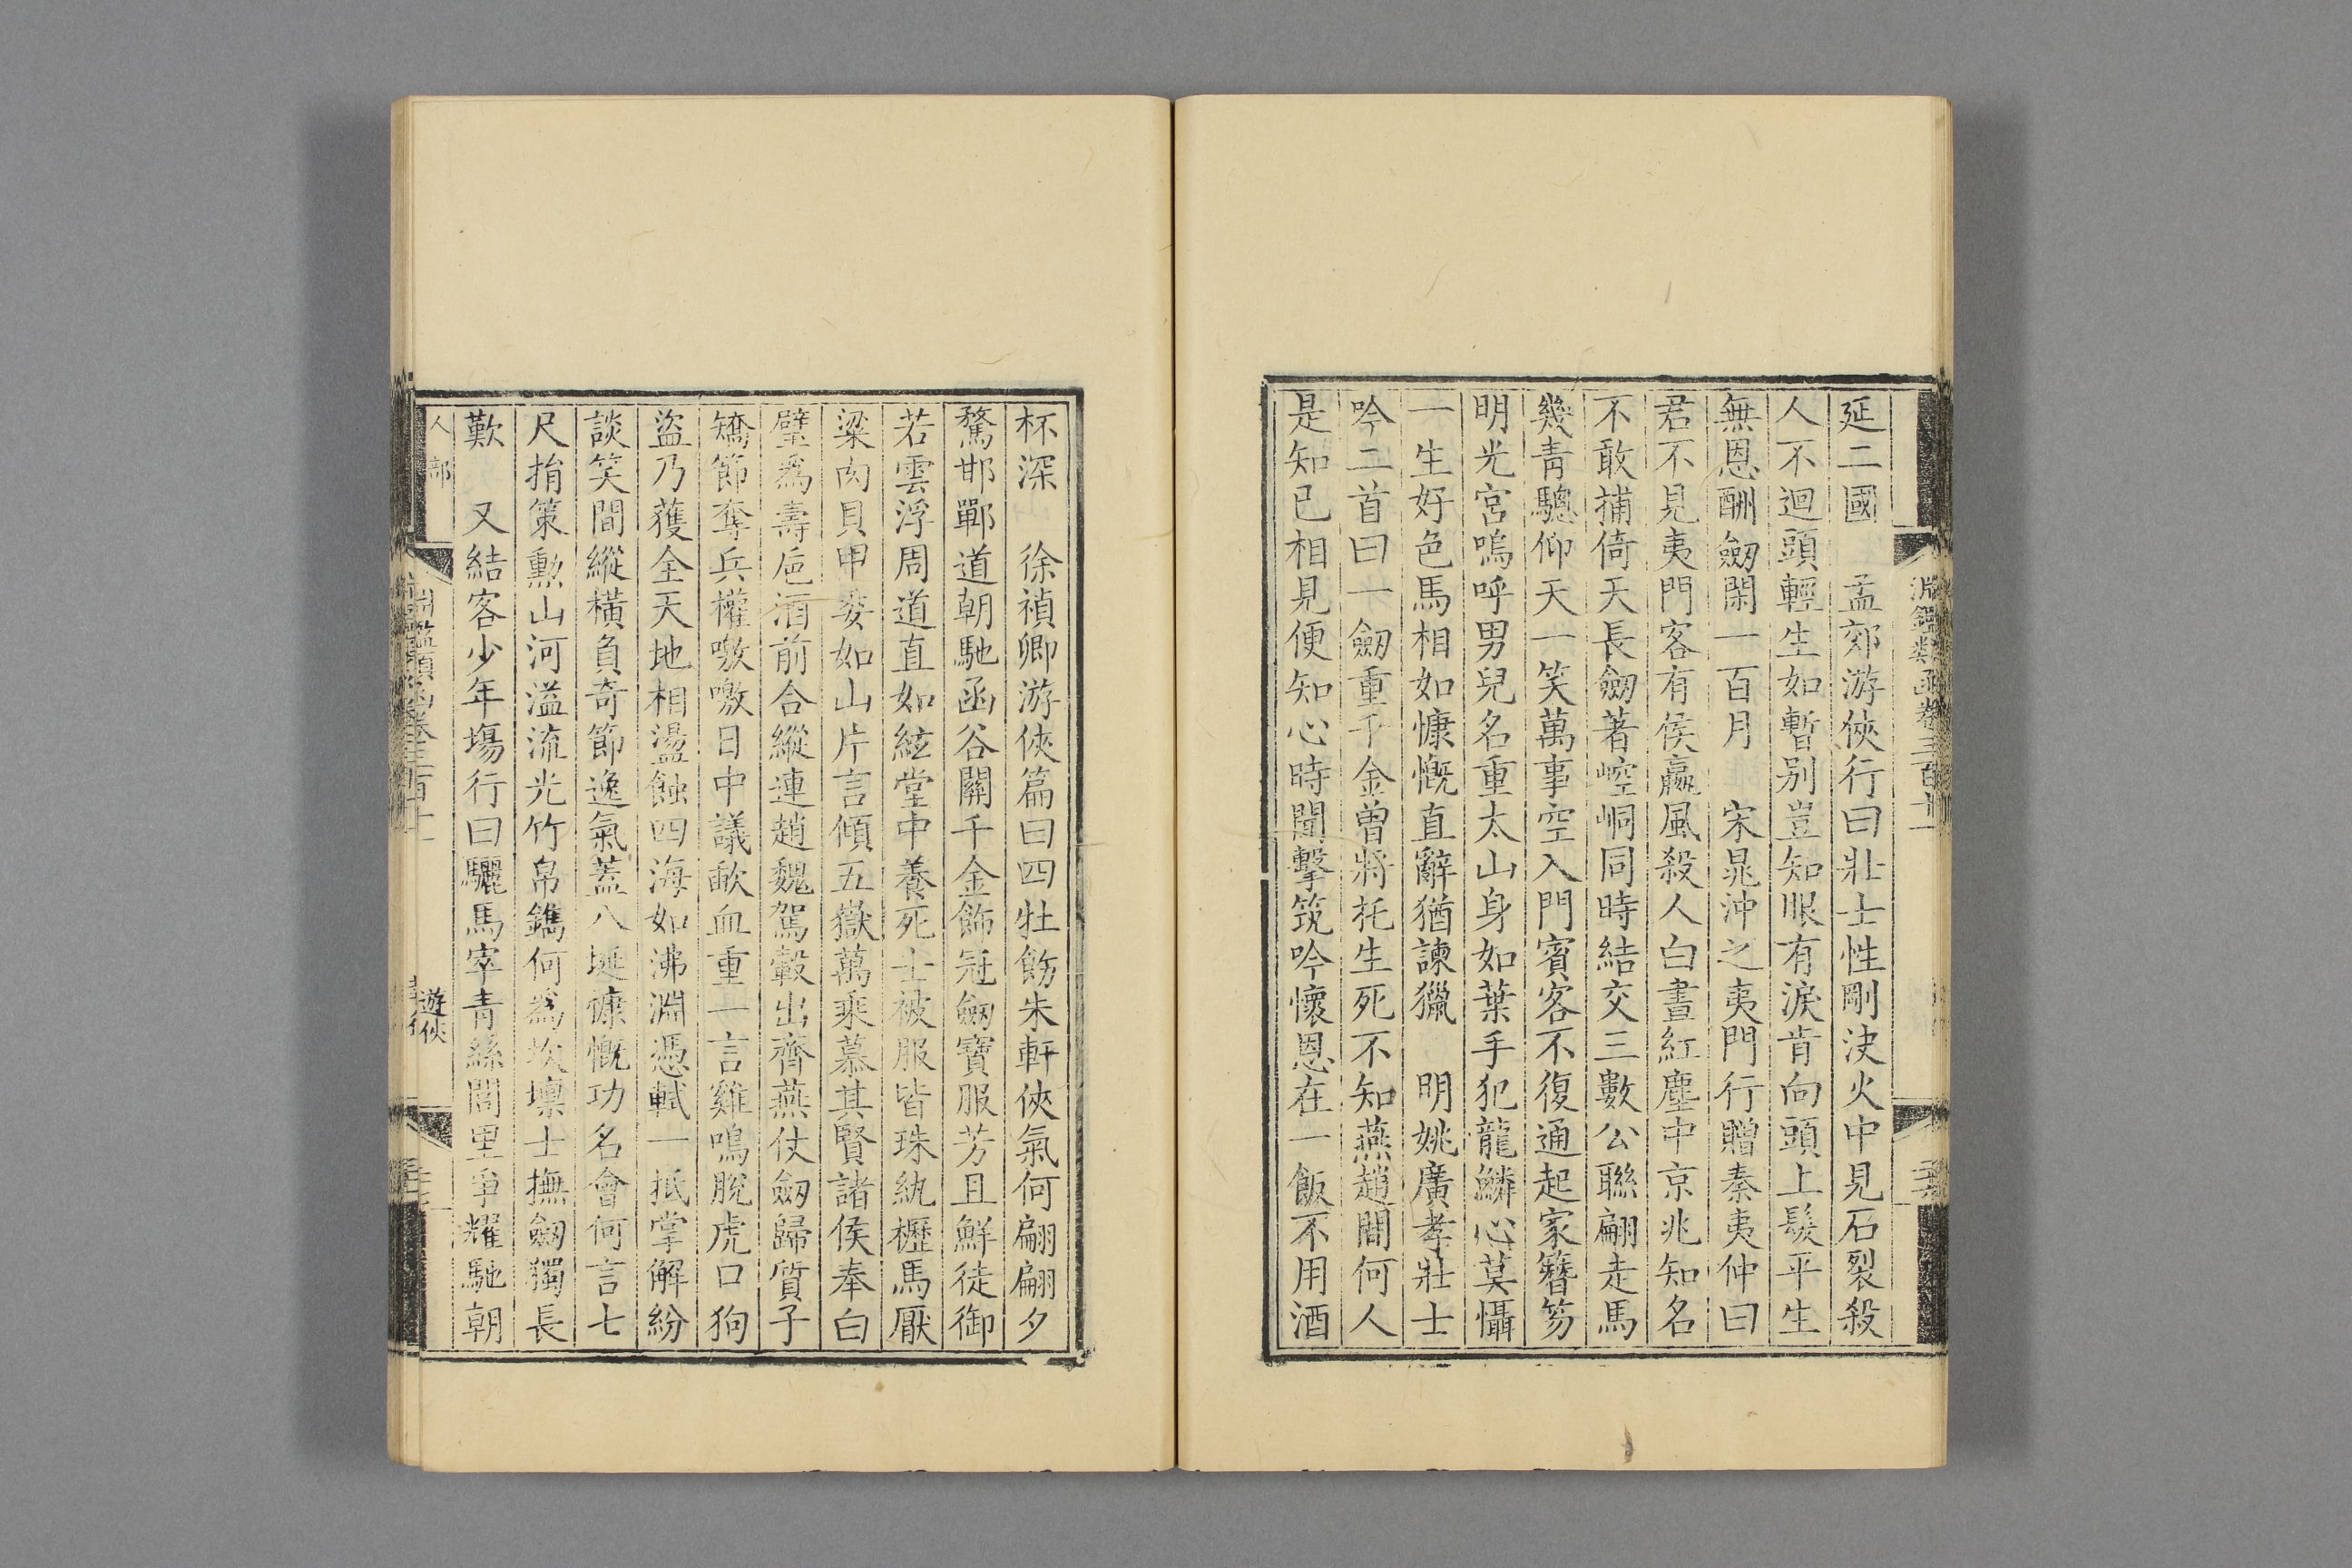 淵鑑類函卷三百十一
延二國　孟郊游俠行曰壯士性剛決火中見石裂殺
人不迴頭輕生如暫別豈知眼有淚肯向頭上髮平生
無恩酬劒閑一百月　宋晁沖之夷門行贈秦夷仲曰
君不見夷門客有侯嬴風殺人白晝紅塵中京兆知名
不敢捕倚天長劒著崆峒同時結交三數公聯翩走馬
幾青驄仰天一笑萬事空入門賓客不復通起家簪笏
明光宮嗚呼男兒名重太山身如葉手犯龍鱗心莫懾
一生好色馬相如慷慨直辭猶諫獵　明姚廣孝壯士
吟二首曰一劒重千金曾將托生死不知燕趙間何人
是知已相見便知心時聞擊筑吟懷恩在一飯不用酒
杯深　徐禎卿游俠篇曰四牡飭朱軒俠氣何翩翩夕
騖邯鄲道朝馳函谷關千金飾冠劒寶服芳且鮮徒御
若雲浮周道直如絃堂中養死士被服皆珠紈櫪馬厭
粱肉貝甲委如山片言傾五嶽萬乘慕其賢諸侯奉白
璧爲壽巵酒前合縱連趙魏駕轂出齊燕仗劒歸質子
矯節奪兵權嗷嗷日中議歃血重一言雞鳴脫虎口狗
盜乃獲全天地相盪蝕四海如沸淵憑軾一抵掌解紛
談笑間縱橫負奇節逸氣蓋八埏慷慨功名會何言七
尺捐策勲山河溢流光竹帛鐫何爲坎壈士撫劒獨長
歎　又結客少年場行曰驪馬宰青絲閭里爭耀馳朝
人部
淵鑑類函卷三百十一
遊俠